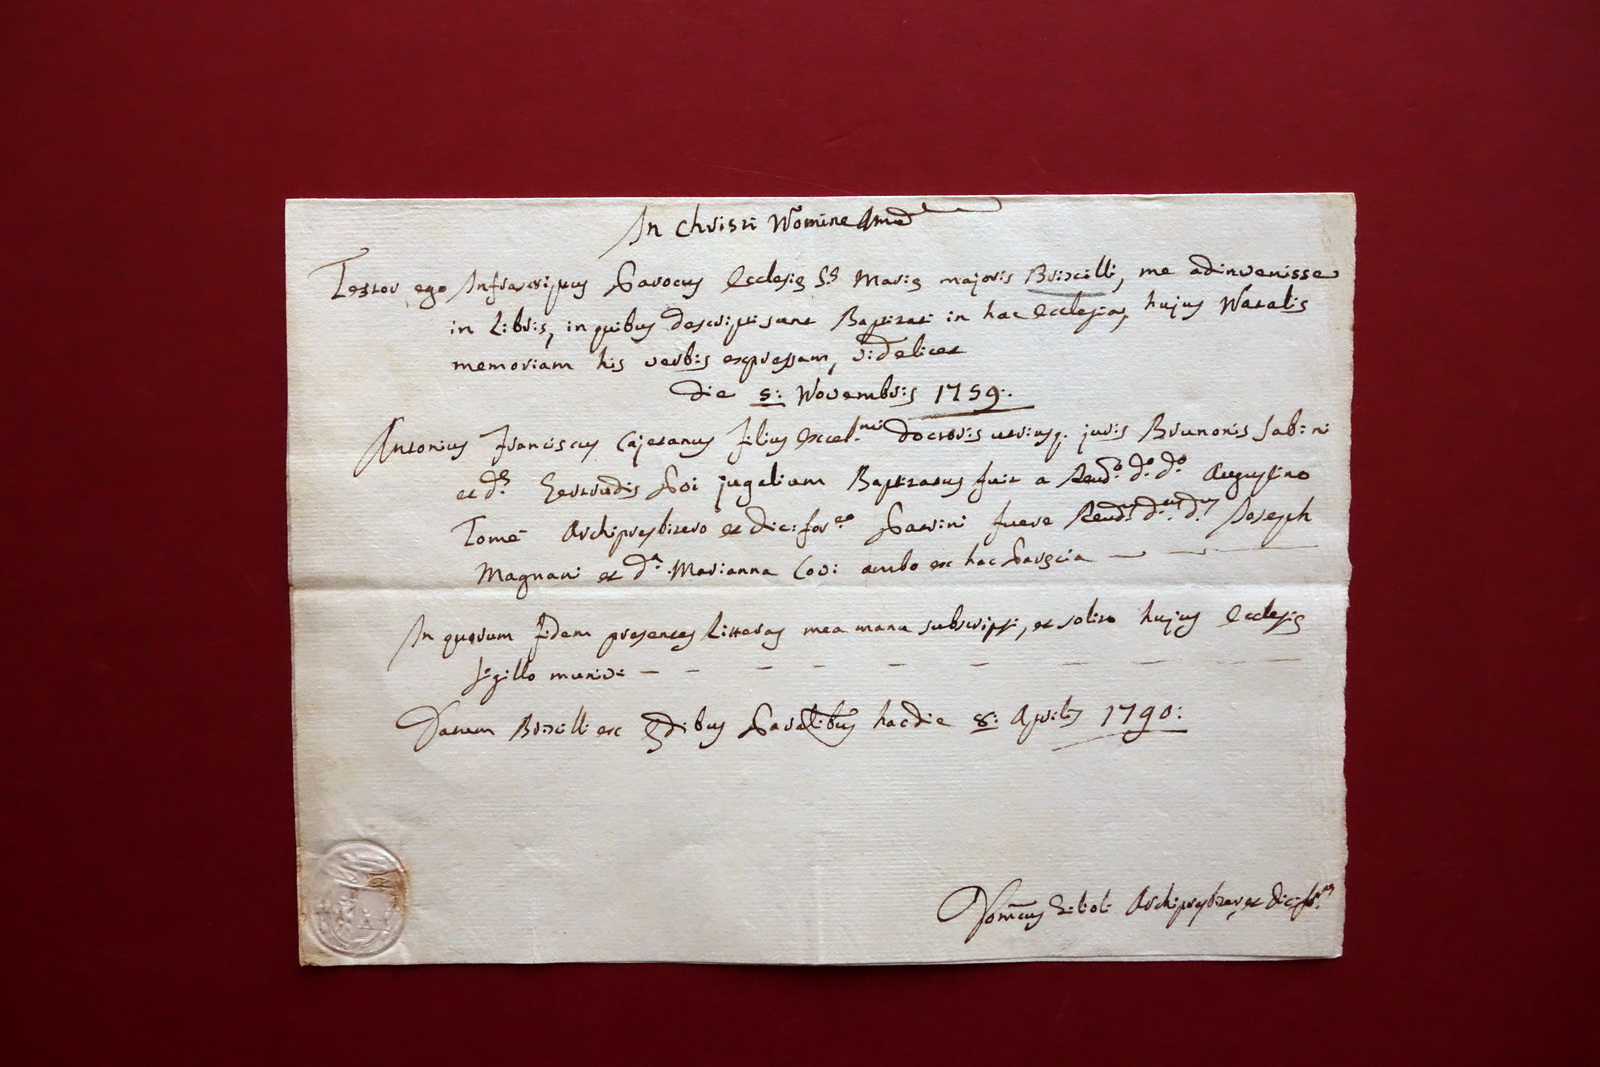 In Christi Nomine Amen
Testor ego Infrascriptus Parocus Ecclesiȩ Sȩ Mariȩ majoris Brixilli, me adinvenisse
in Libris, in quibus descripti sunt Baptizati in hac Ecclesia, hujus Natalis
memoriam his verbis expressam, videlicet
Die 5: Novembris 1759:
Antonius Franciscus Cajetanus filius Excel.mi Doctoris utriusq. juris Brunonis Sabini
et D.ȩ Gertrudis Poi jugalium Baptizatus fuit a Rend.o D.o D.o Augustino
Tomè Archipresbitero et Vic: For.eo Patrini fuere Rend.us D.us D.us Joseph
Magnani et D.a Marianna Covi ambo ex hac Parȩcia
In quorum fidem presentes Litteras mea manu subscripsi, et solito hujus Ecclesiȩ
sigillo munivi
Datum Brixilli ex Ȩdibus Paralibus hac die 8: Aprilis 1790:
Archipresbiter, et Vic: For.us